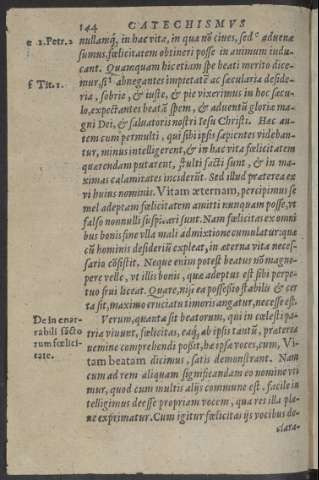 144 CATECHISMVS
e 2. Petr. 2 nullamq́, in hac vita, in qua nō ciues, sed e aduenæ
sumus, fœlicitatem obtineri posse in animum indu-
cant. Quamquam hic etiam spe beati merito dice-
f Tit. 2. mur, si f abnegantes impietatē ac sæcularia deside-
ria, sobrie, & iuste, & pie vixerimus in hoc sæcu-
lo, expectantes beatā spem, & aduentū gloriæ ma-
gni Dei, & saluatoris nostri Iesu Christi. Hæc au-
tem cum permulti, qui sibi ipsi sapientes videban-
tur, minus intelligerent, & in hac vita fœlicitatem
quærendam putarent, stulti facti sunt, & in ma-
ximas calamitates inciderūt. Sed illud præterea ex
vi huius nominis, Vitam æternam, percipimus se
mel adeptam fœlicitatem amitti nunquam posse, vt
falso nonnulli suspicati sunt. Nam fœlicitas ex omni
bus bonis sine vlla mali admixtione cumulatur: quæ
cū hominis desideriū expleat, in æterna vita neces-
sario cōsistit. Neque enim potest beatus nō magno-
pere velle, vt illis bonis, quæ adeptus est sibi perpe-
tuo frui liceat. Quare, nisi ea possessio stabilis & cer
ta sit, maximo cruciatu timoris angatur, necesse est.
De in enar-
rabili sācto
rum fœlici-
tate.
Verum, quanta sit beatorum, qui in cœlesti pa-
tria viuunt, fœlicitas, eaq́, ab ipsis tantū, præterea
nemine comprehendi possit, hæ ipsæ voces, cum, Vi-
tam beatam dicimus, satis demonstrant. Nam
cum ad rem aliquam significandam eo nomine vti
mur, quod cum multis alijs commune est, facile in
telligimus deesse proprium vocem, qua res illa pla-
ne exprimatur. Cum igitur fœlicitas ijs vocibus de-
clara-